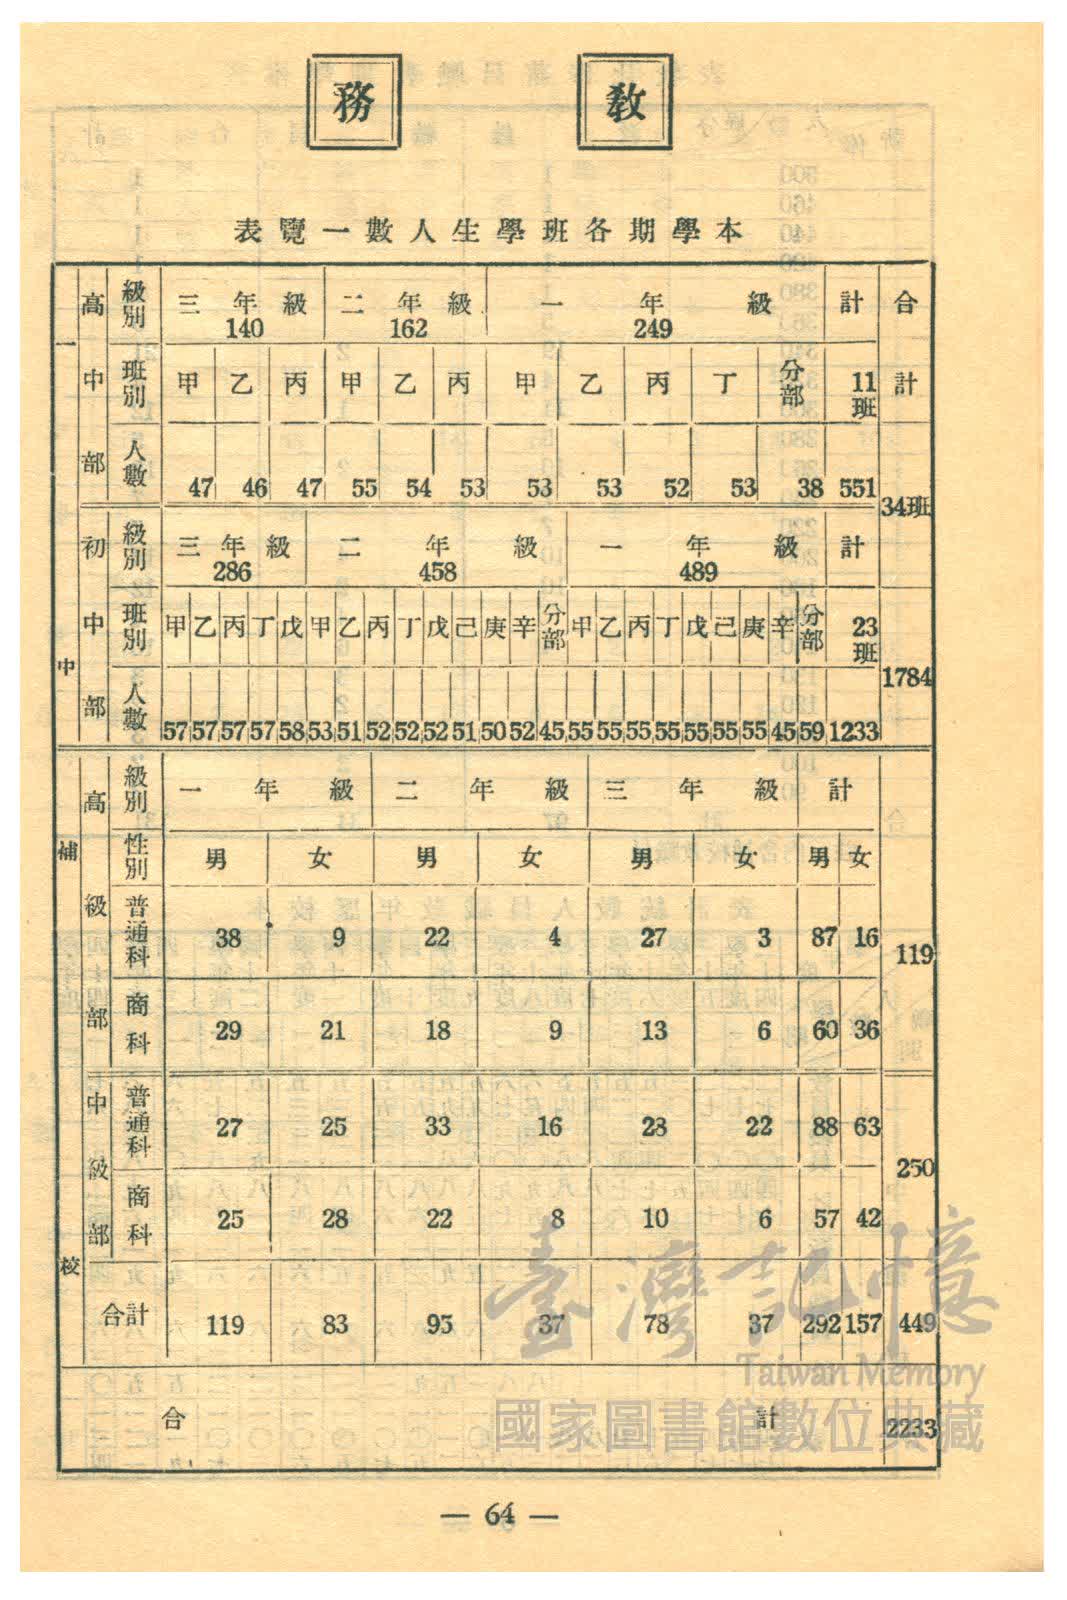 教務
本學期各班學生人數一覽表
一中
高中部
級別 三年級 140 二年級 162 一年級 249 計 合計
班別 甲 乙 丙 甲 乙 丙 甲 乙 丙 丁 分部 11班
人數 47 46 47 55 54 53 53 53 52 53 38 551
34班
初中部
級別 三年級 286 二年級 458 一年級 489 計
班別 甲 乙 丙 丁 戊 甲 乙 丙 丁 戊 己 庚 辛 分部 甲 乙 丙 丁 戊 己 庚 辛 分部 23班
人數 57 57 57 57 58 53 51 52 52 52 51 50 52 45 55 55 55 55 55 55 55 45 59 1233
1784
補校
高級部
級別 一年級 二年級 三年級 計
性別 男 女 男 女 男 女 男 女
普通科 38 9 22 4 27 3 87 16
119
商科 29 21 18 9 13 6 60 36
中級部
普通科 27 25 33 16 28 22 88 63
250
商科 25 28 22 8 10 6 57 42
合計 119 83 95 37 78 37 292 157 449
合計 2233
臺灣記憶
Taiwan Memory
國家圖書館數位典藏
— 64 —